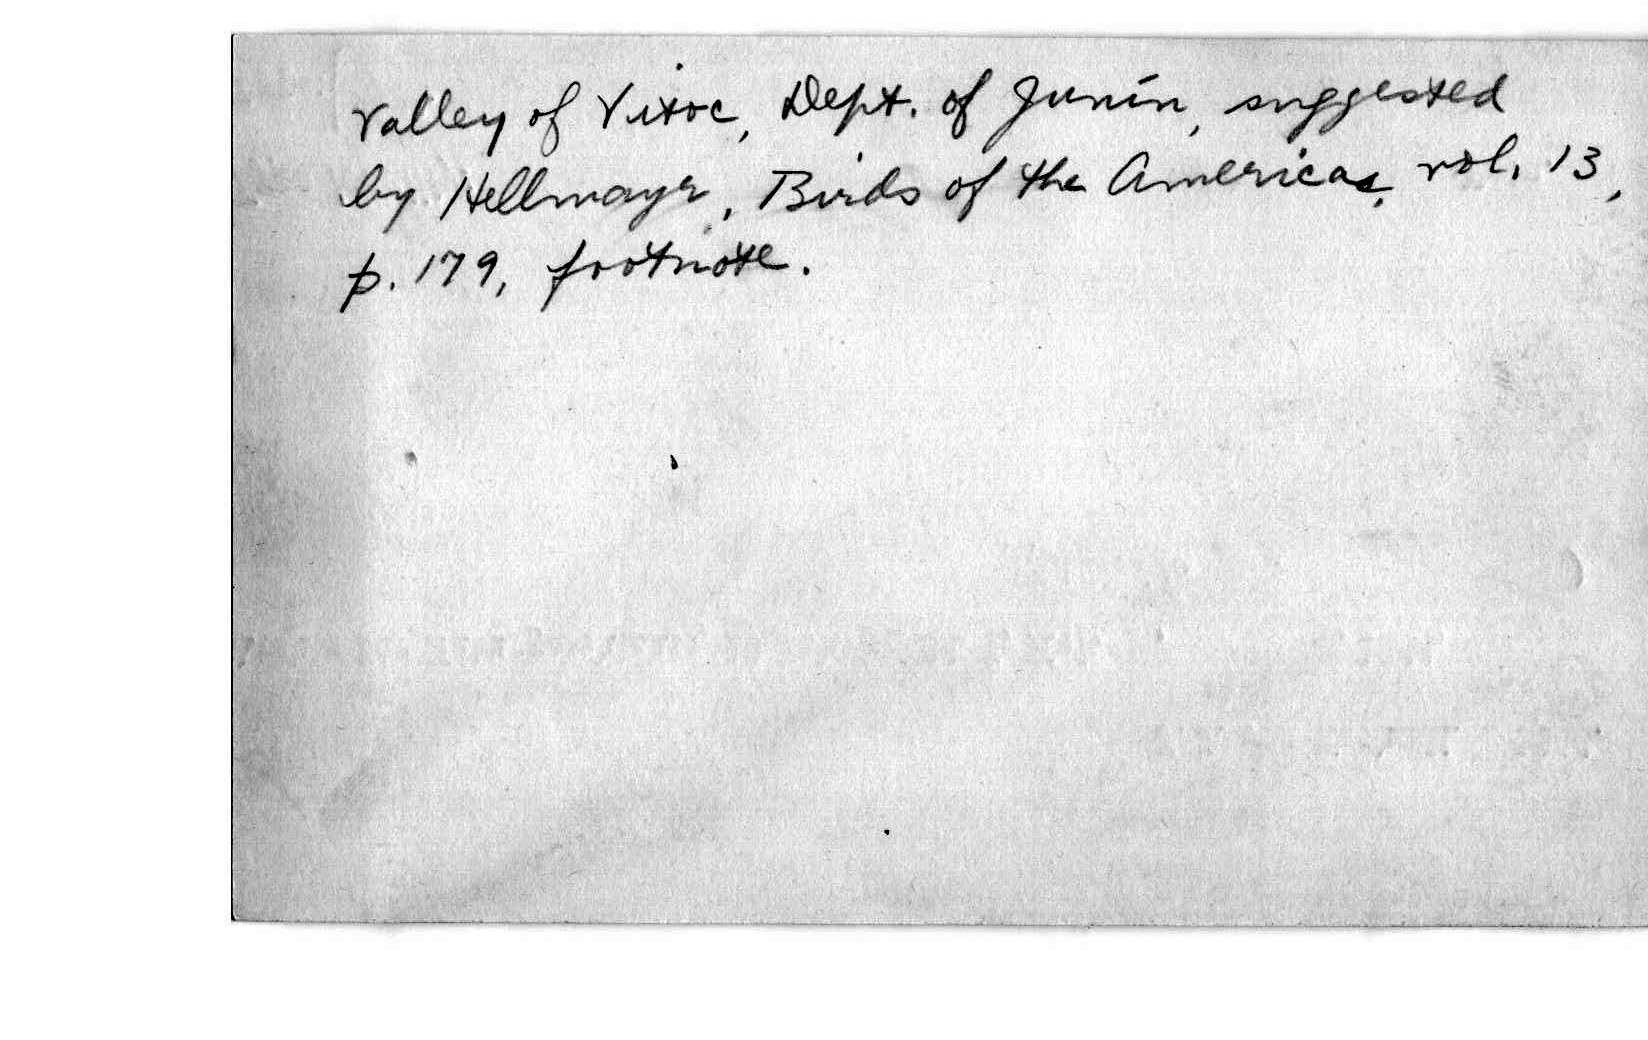 Valley of Vitoc, Dept. of Junín, suggested
by Hellmayr, Birds of the Americas, vol. 13,
p. 179, footnote.